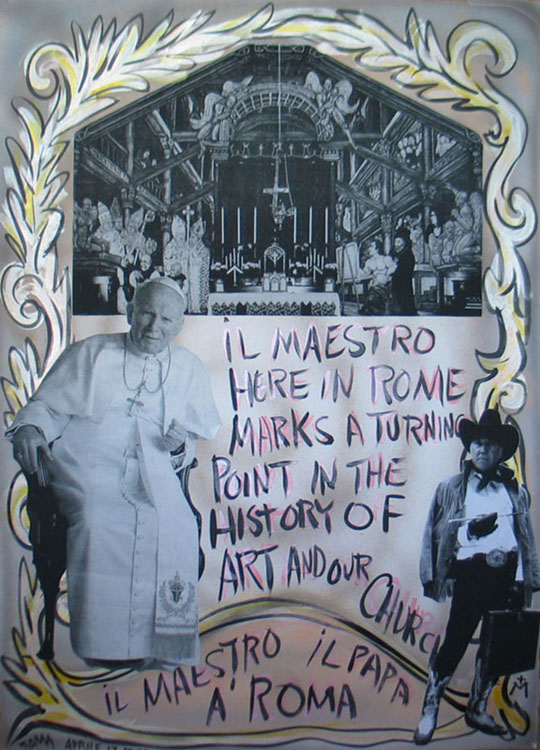 iL MAESTRO
HERE IN ROME
MARKS A TURNING
POINT IN THE
HISTORY OF
ART AND OUR
CHURCH
iL MAESTRO iL PAPA
A' ROMA
ROMA APRILE